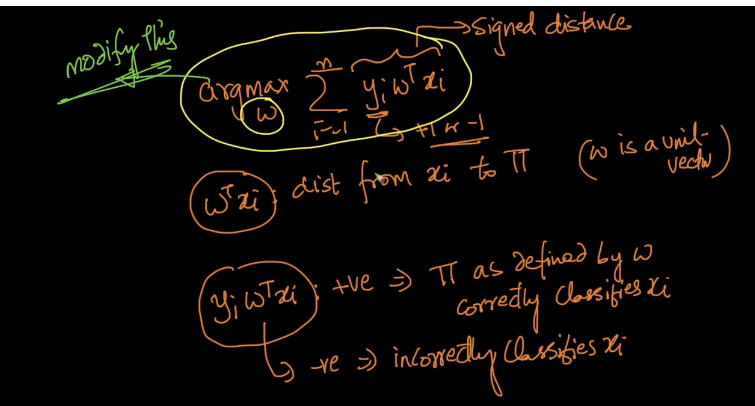 signed distance
modify this
argmax Σ yi wᵀ xi
w
n
i=1
+1 or -1
wᵀxi : dist from xi to π (w is a unit-
vector)
yi wᵀxi : +ve ⇒ π as defined by w
correctly classifies xi
-ve ⇒ incorrectly classifies xi